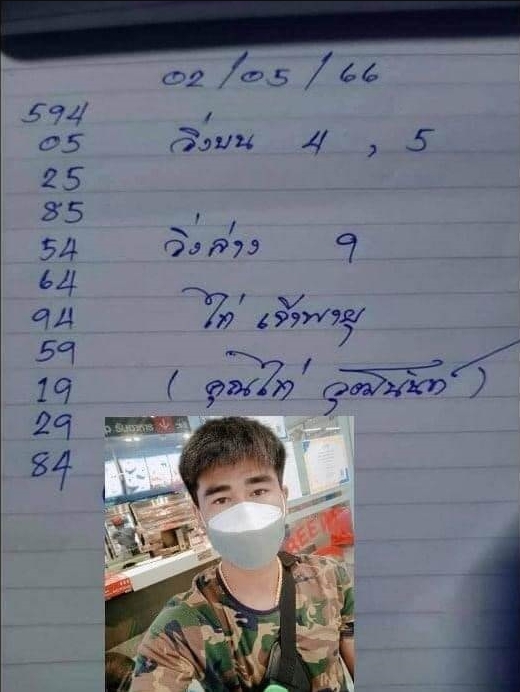 02/05/66
594
05
วิ่งบน 4 , 5
25
85
54
วิ่งล่าง 9
64
94
ไก่ เจ้าพายุ
59
19
(คุณไก่ วุฒินันท์)
29
84